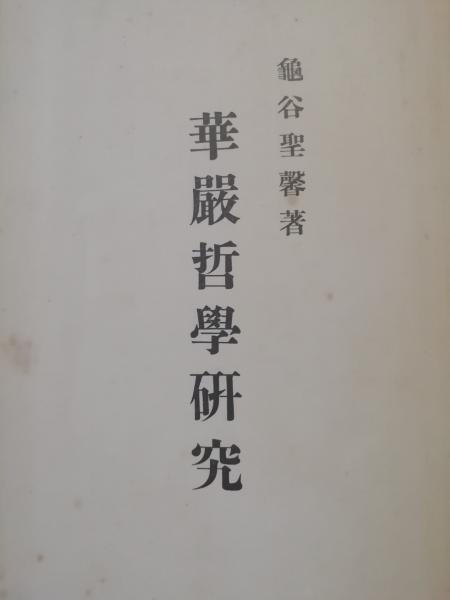 龜谷聖馨著
華嚴哲學硏究